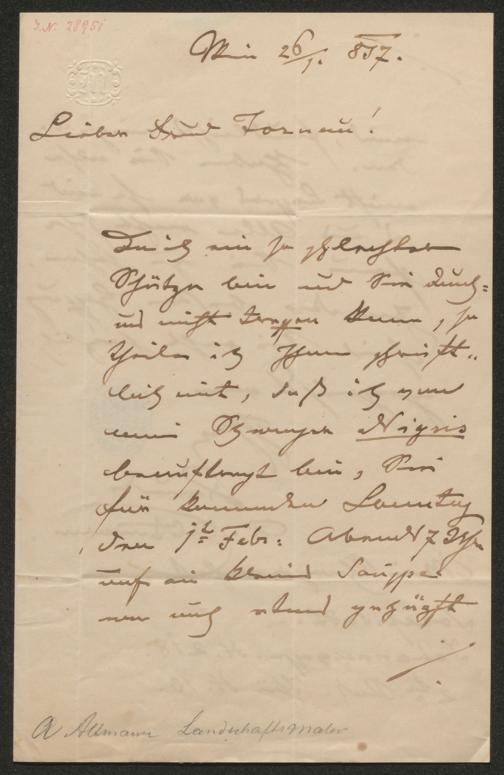 I.N. 28951
Wien 26/1. 857.
Lieber Freund Tornau!
Da ich ein so schlechter
Schütze bin und Sie durch-
aus nicht treffen kann, so
theile ich Ihnen schrift-
lich mit, daß ich von
mein Schwager Nigris
beauftragt bin, Sie
für kommenden Sonntag
den 1t Feb: Abends 7 Uhr
auf ein kleines Souppe
A Altmann Landschaftsmaler